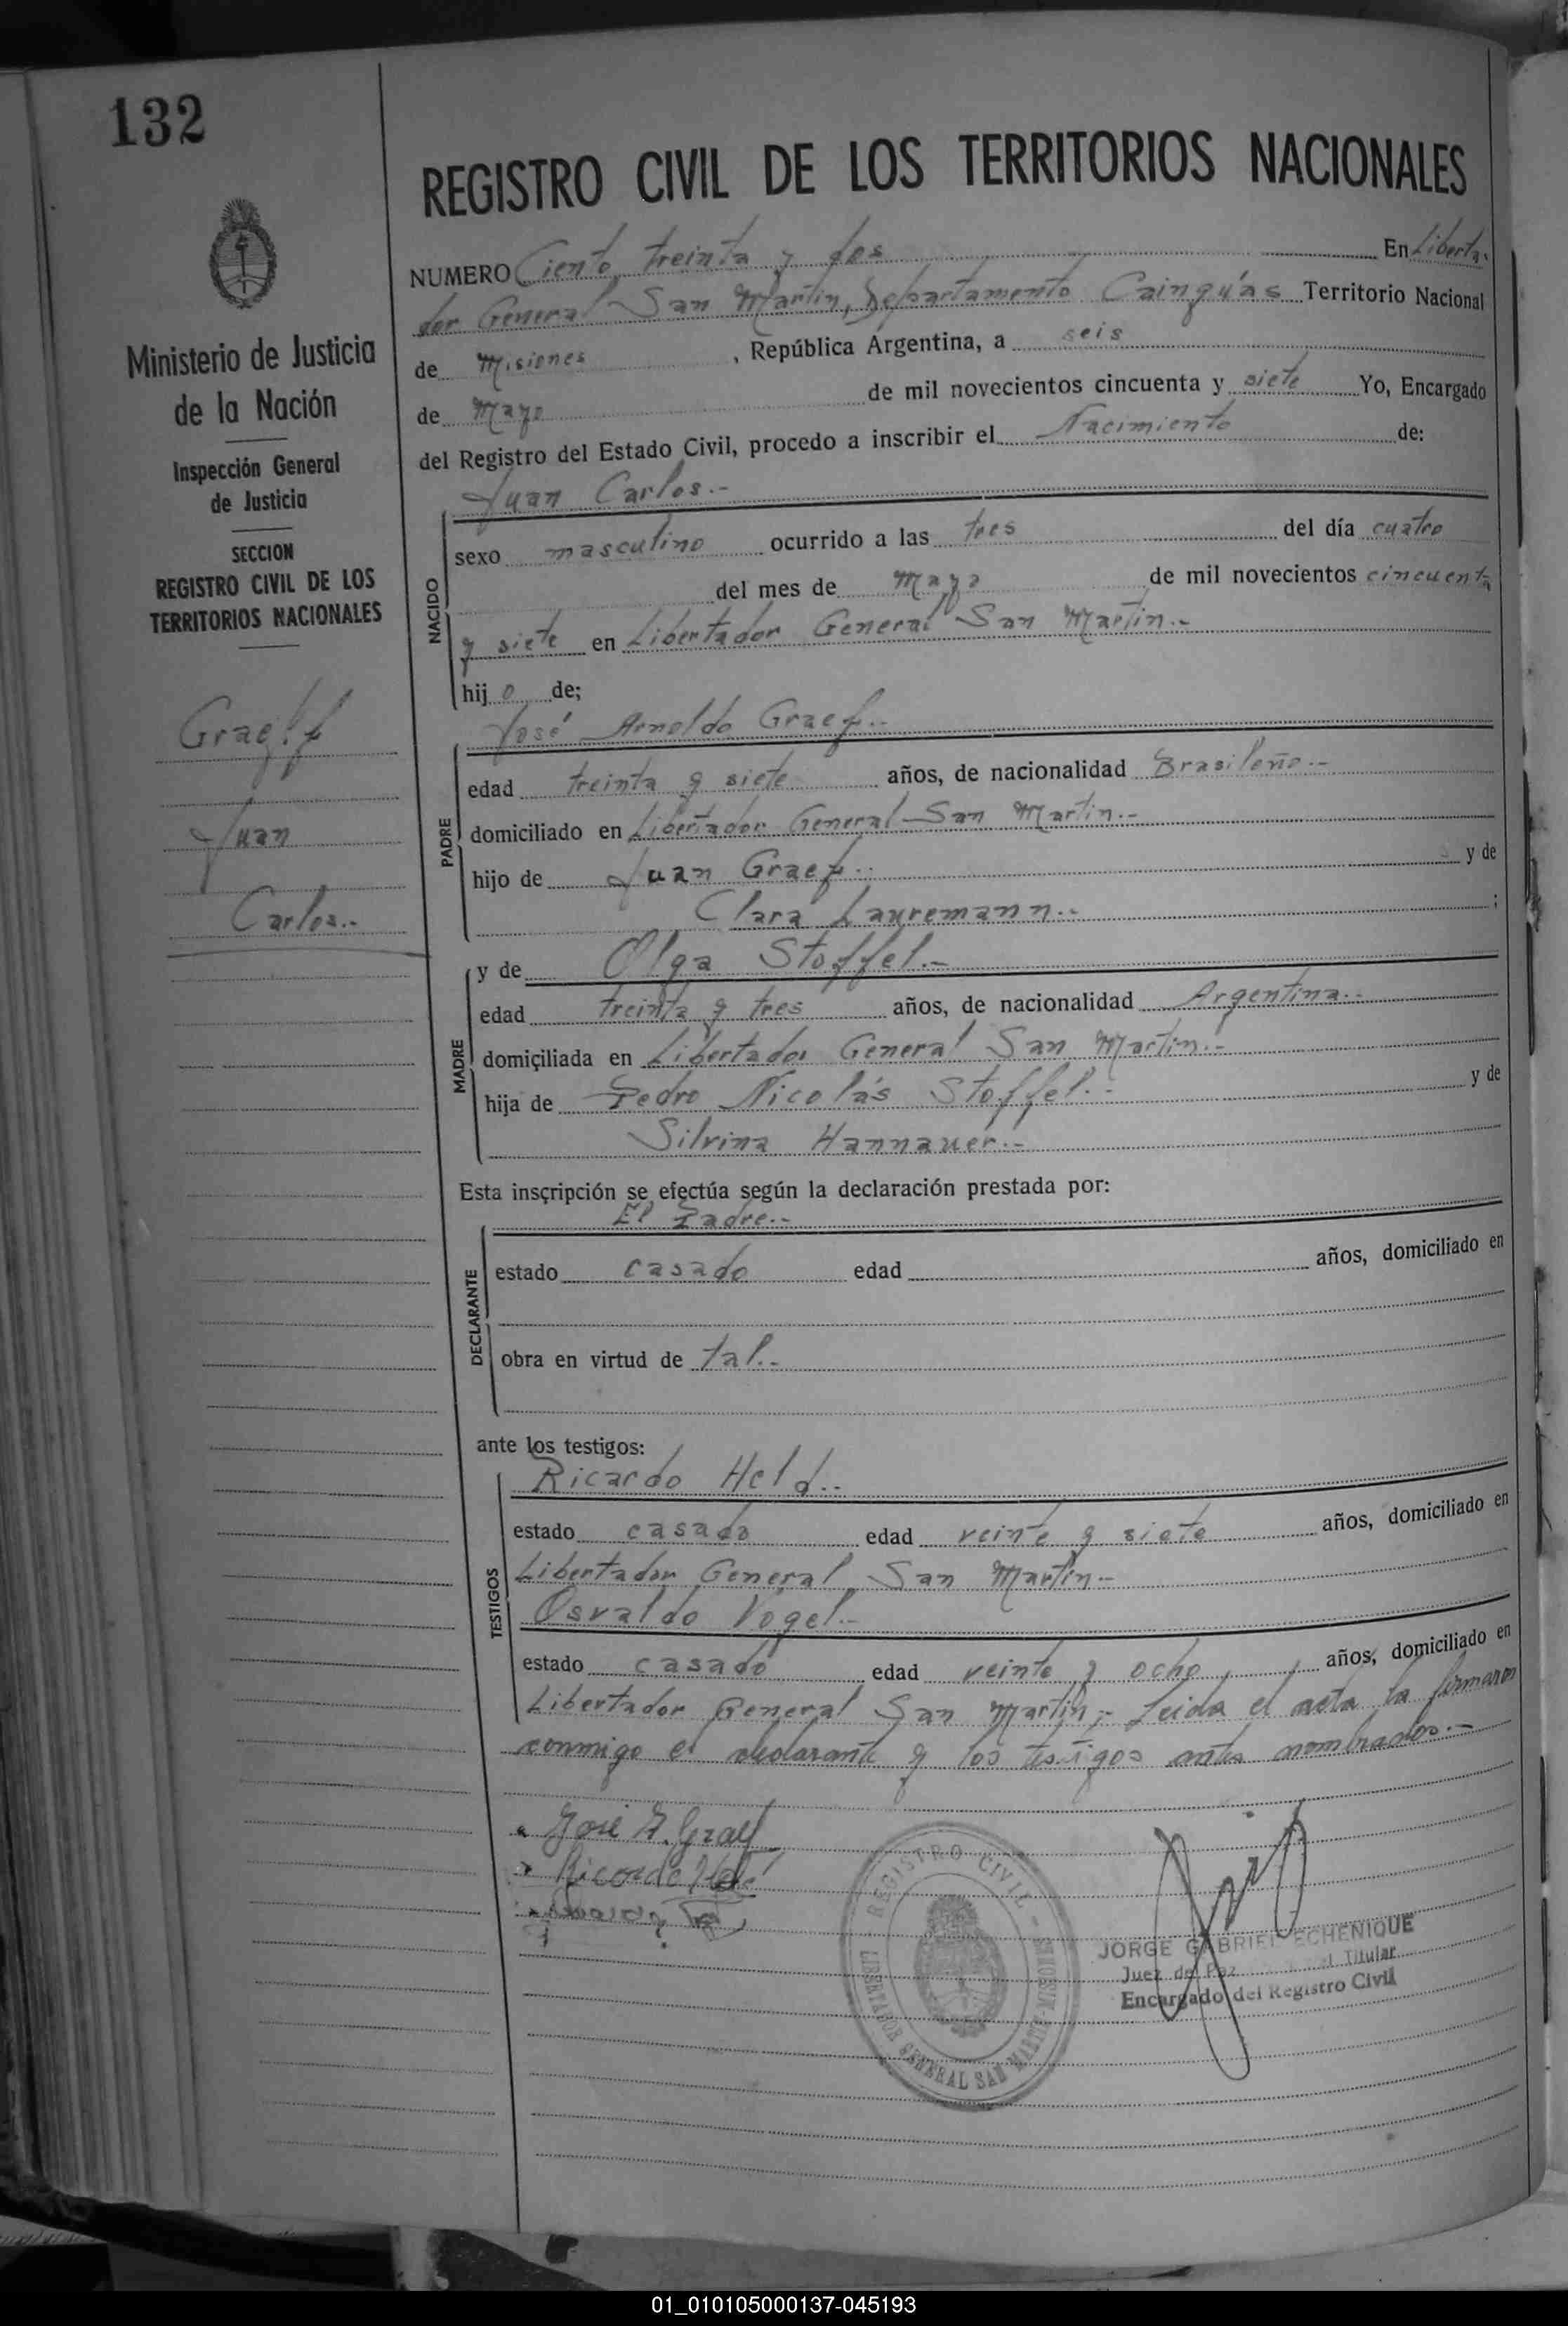 132
Ministerio de Justicia
de la Nación
Inspección General
de Justicia
SECCION
REGISTRO CIVIL DE LOS
TERRITORIOS NACIONALES
Graef
Juan
Carlos.-
REGISTRO CIVIL DE LOS TERRITORIOS NACIONALES
NUMERO Ciento treinta y dos En Liberta-
dor General San Martin, Departamento Cainguás Territorio Nacional
de Misiones, República Argentina, a seis
de Mayo de mil novecientos cincuenta y siete Yo, Encargado
del Registro del Estado Civil, procedo a inscribir el Nacimiento de:
Juan Carlos.-
NACIDO
sexo masculino ocurrido a las tres del día cuatro
del mes de Mayo de mil novecientos cincuenta
y siete en Libertador General San Martin.-
hijo de;
José Arnoldo Graef.-
PADRE
edad treinta y siete años, de nacionalidad Brasileño.-
domiciliado en Libertador General San Martin.-
hijo de Juan Graef.- y de
Clara Lauremann.- ;
MADRE
y de Olga Stoffel.-
edad treinta y tres años, de nacionalidad Argentina.-
domiciliada en Libertador General San Martin.-
hija de Pedro Nicolás Stoffel.- y de
Silvina Hannauer.-
Esta inscripción se efectúa según la declaración prestada por:
El Padre.-
DECLARANTE
estado casado edad años, domiciliado en
obra en virtud de tal.-
ante los testigos:
Ricardo Held.-
TESTIGOS
estado casado edad veinte y siete años, domiciliado en
Libertador General San Martin.-
Osvaldo Vogel.-
estado casado edad veinte y ocho años, domiciliado en
Libertador General San Martin.- Leida el acta la firmaron
conmigo el declarante y los testigos antes nombrados.-
José A. Graef
Ricardo Held
REGISTRO CIVIL
LIBERTADOR GENERAL SAN MARTIN MISIONES
JORGE GABRIEL ECHENIQUE
Juez de Paz Titular
Encargado del Registro Civil
01_010105000137-045193